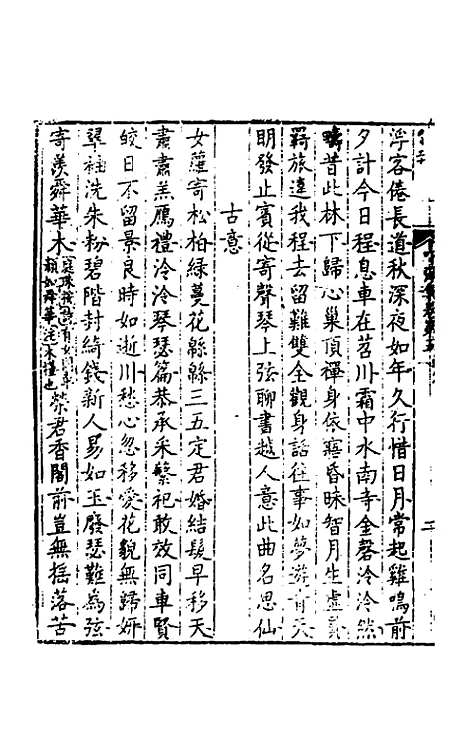 浮客倦長道秋深夜如年久行惜日月常起雞鳴前
夕計今日程息車在苕川霜中水南寺金磬泠泠然
疇昔此林下歸心巢頂禪身依寤昏昧智月生虛
羇旅違我程去留難雙全觀身話往事如夢游青天
明發止賓從寄聲琴上弦聊書越人意此曲名思仙
古意
女蘿寄松柏綠蔓花緜緜三五定君婚結髮早移天
肅肅羔鴈禮泠泠琴瑟篇恭承采蘩祀敢效同車賢
皎日不留景良時如逝川愁心忽移愛花貌無歸妍
翠袖洗朱粉碧階封綺錢新人易如玉廢瑟難為弦
寄羨舜華木
顏如舜華注木槿也
榮君香閣前豈無搖落苦